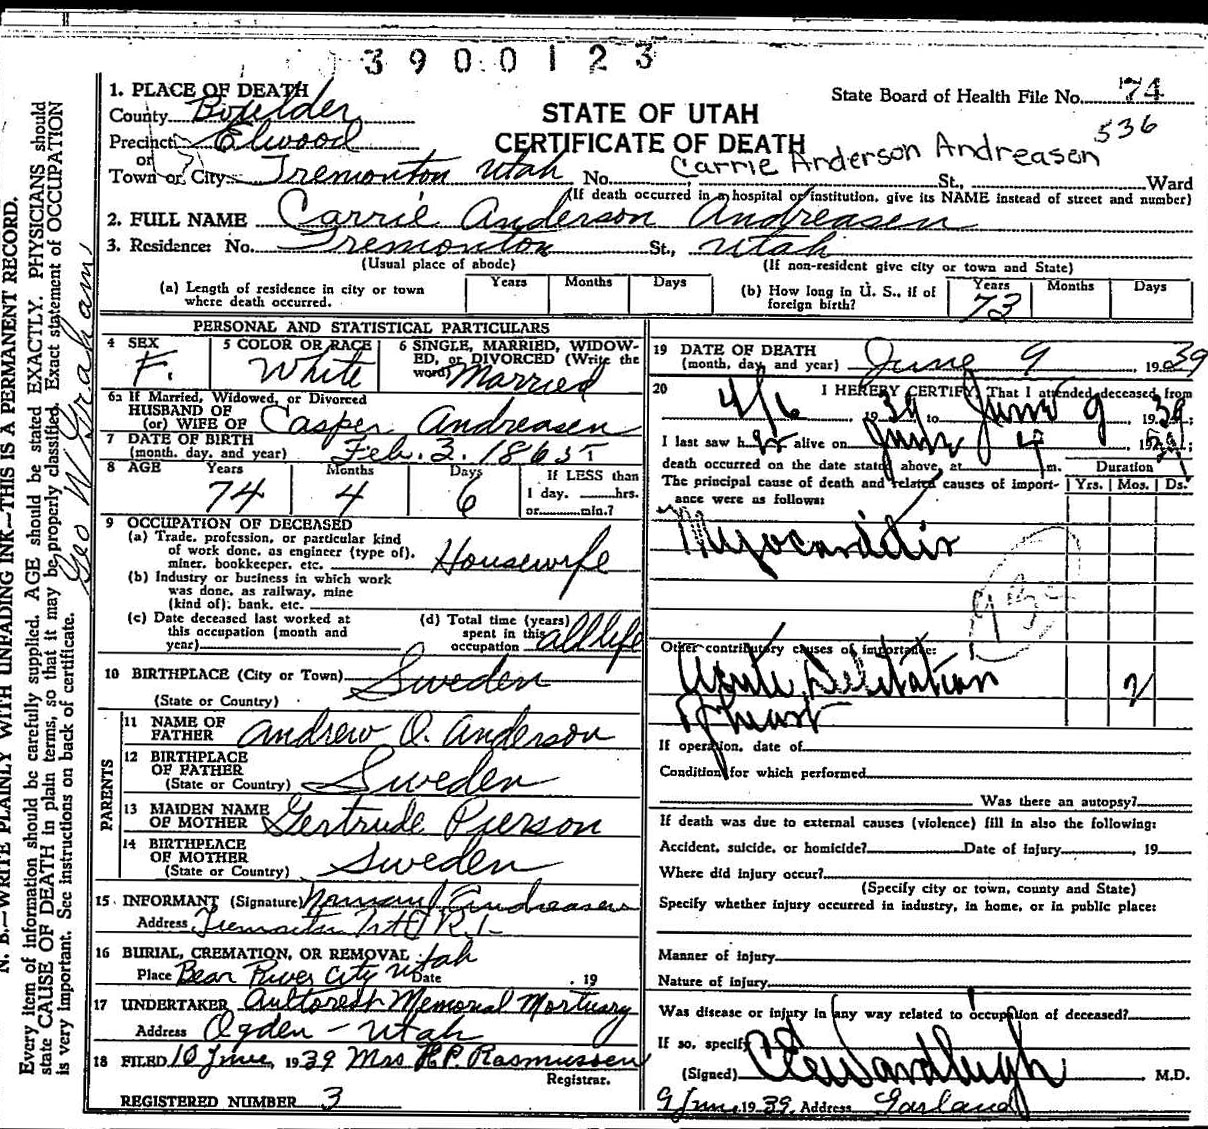 3900123
1. PLACE OF DEATH
County Boulder
Precinct Elwood
or
Town or City Tremonton Utah No. St., Ward
STATE OF UTAH
CERTIFICATE OF DEATH
State Board of Health File No. 74
536
Carrie Anderson Andreasen
(If death occurred in a hospital or institution, give its NAME instead of street and number)
2. FULL NAME Carrie Anderson Andreasen
3. Residence: No. Tremonton St., Utah
(Usual place of abode) (If non-resident give city or town and State)
(a) Length of residence in city or town where death occurred. Years Months Days
(b) How long in U. S., if of foreign birth? Years 73 Months Days
PERSONAL AND STATISTICAL PARTICULARS
4 SEX F.
5 COLOR OR RACE White
6 SINGLE, MARRIED, WIDOWED, or DIVORCED (Write the word) Married
6a If Married, Widowed, or Divorced
HUSBAND OF
(or) WIFE OF Casper Andreasen
7 DATE OF BIRTH
(month, day, and year) Feb. 3. 1865
8 AGE Years 74 Months 4 Days 6 If LESS than
1 day, hrs.
or min.?
9 OCCUPATION OF DECEASED
(a) Trade, profession, or particular kind
of work done, as engineer (type of),
miner, bookkeeper, etc. Housewife
(b) Industry or business in which work
was done, as railway, mine
(kind of); bank, etc.
(c) Date deceased last worked at
this occupation (month and
year)
(d) Total time (years)
spent in this
occupation all life
10 BIRTHPLACE (City or Town) Sweden
(State or Country)
PARENTS
11 NAME OF
FATHER Andrew O. Anderson
12 BIRTHPLACE
OF FATHER
(State or Country) Sweden
13 MAIDEN NAME
OF MOTHER Gertrude Pierson
14 BIRTHPLACE
OF MOTHER
(State or Country) Sweden
15 INFORMANT (Signature) Andreasen
Address Tremonton R. 1
16 BURIAL, CREMATION, OR REMOVAL Utah
Place Bear River City Utah Date , 19
17 UNDERTAKER Aultorest Memorial Mortuary
Address Ogden - Utah
18 FILED 10 June, 1939 Mrs R.P. Rasmussen
Registrar.
REGISTERED NUMBER 3
19 DATE OF DEATH
(month, day, and year) June 9 , 1939
20 I HEREBY CERTIFY, That I attended deceased from
4/6 1939 to June 9 1939;
I last saw her alive on June 1939;
death occurred on the date stated above, at m.
The principal cause of death and related causes of importance were as follows:
Duration
Yrs. Mos. Ds.
Myocarditis
Other contributory causes of importance:
Acute Dilitation
of heart
If operation, date of
Condition for which performed
Was there an autopsy?
If death was due to external causes (violence) fill in also the following:
Accident, suicide, or homicide? Date of injury , 19
Where did injury occur?
(Specify city or town, county and State)
Specify whether injury occurred in industry, in home, or in public place:
Manner of injury
Nature of injury
Was disease or injury in any way related to occupation of deceased?
If so, specify
(Signed) M.D.
9 June, 1939. Address Garland
N. B.—WRITE PLAINLY WITH UNFADING INK—THIS IS A PERMANENT RECORD.
Every item of information should be carefully supplied. AGE should be stated EXACTLY. PHYSICIANS should
state CAUSE OF DEATH in plain terms, so that it may be properly classified. Exact statement of OCCUPATION
is very important. See instructions on back of certificate.
Geo W Graham